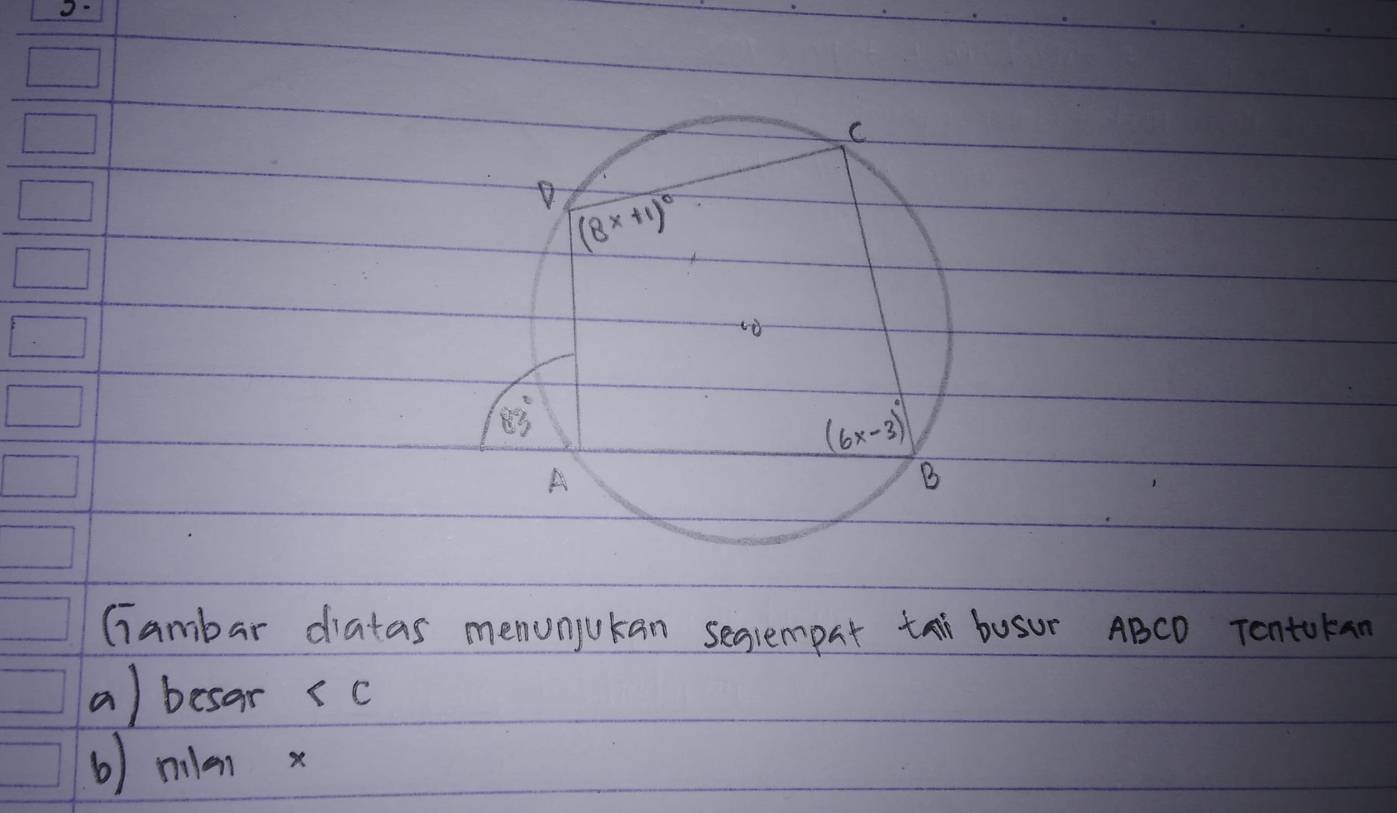 3.
C
D
(8x+1)°
83°
(6x-3)°
A
B
Gambar diatas menunjukan segiempat tali busur ABCD Tentukan
a) besar < C
b) nilai x